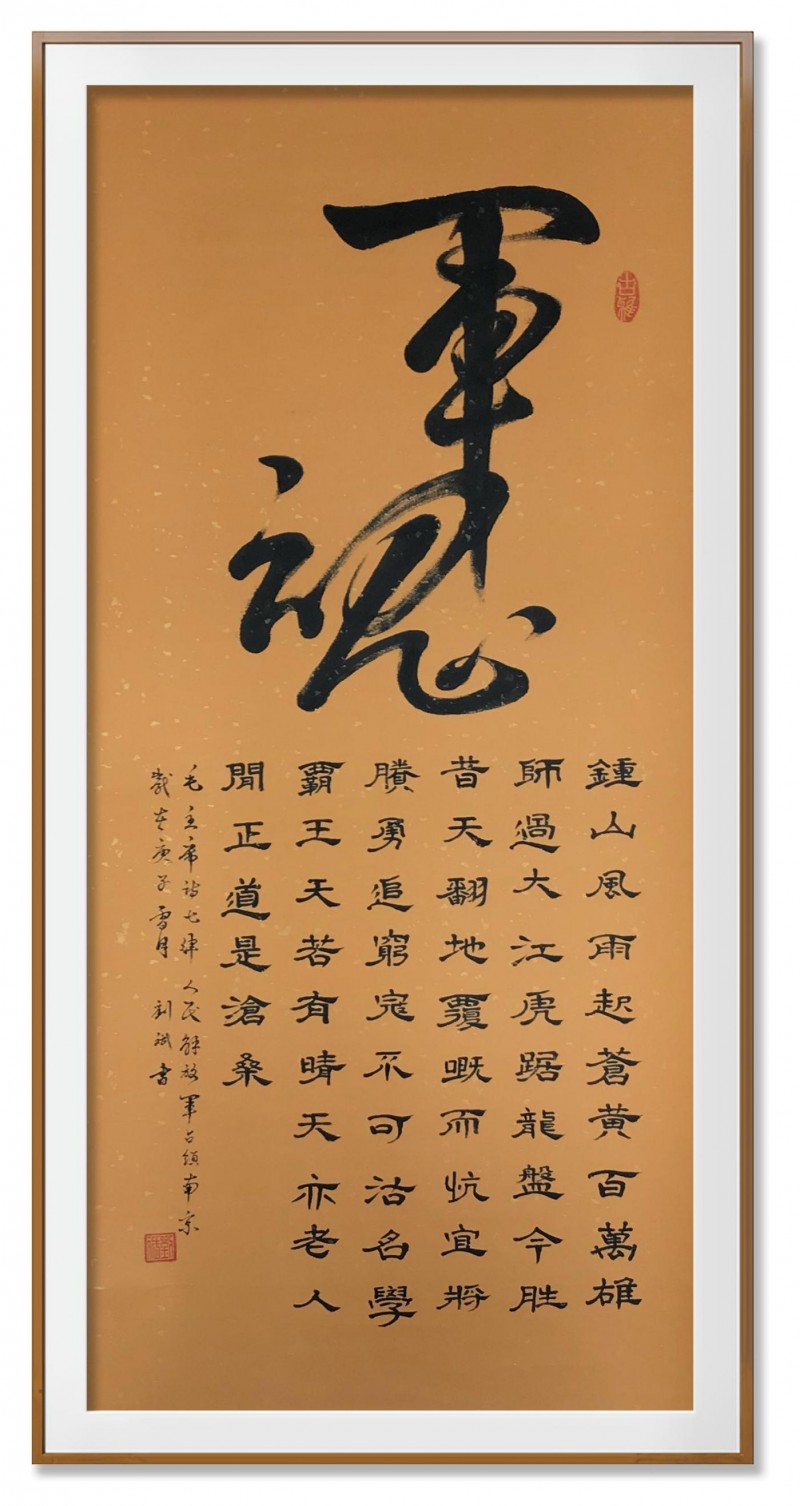 軍魂
鍾山風雨起蒼黄百萬雄
師過大江虎踞龍盤今胜
昔天翻地覆嘅而忼宜將
賸勇追窮寇不可沽名學
霸王天若有晴天亦老人
間正道是滄桑
毛主席詩七律 人民解放軍占領南京
歲在庚子雪月 刘斌書